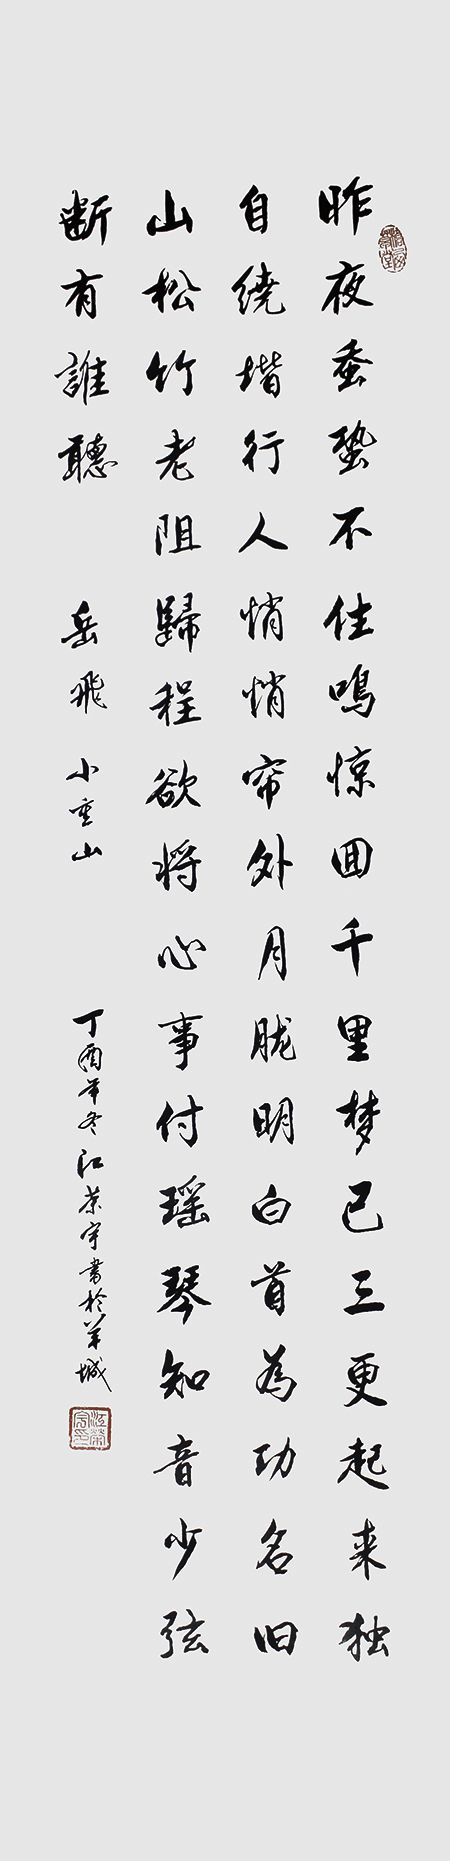 昨夜蛩蛩不住鳴惊回千里梦已三更起来独
自绕堦行人悄悄帘外月胧明白首为功名旧
山松竹老阻歸程欲将心事付瑶琴知音少弦
断有誰聽 岳飛 小重山 丁酉年冬江荣宇書於羊城